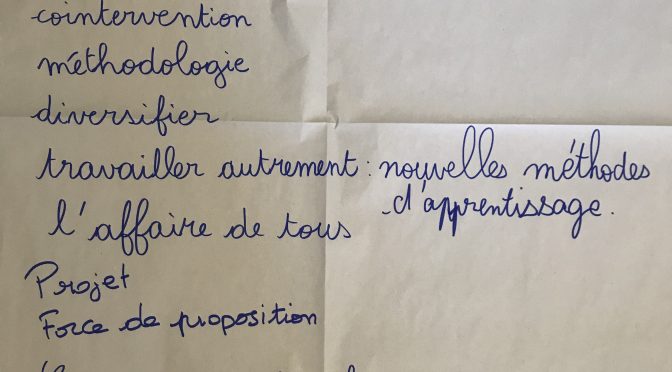 cointervention
méthodologie
diversifier
travailler autrement : nouvelles méthodes
d'apprentissage.
l'affaire de tous
Projet
Force de proposition